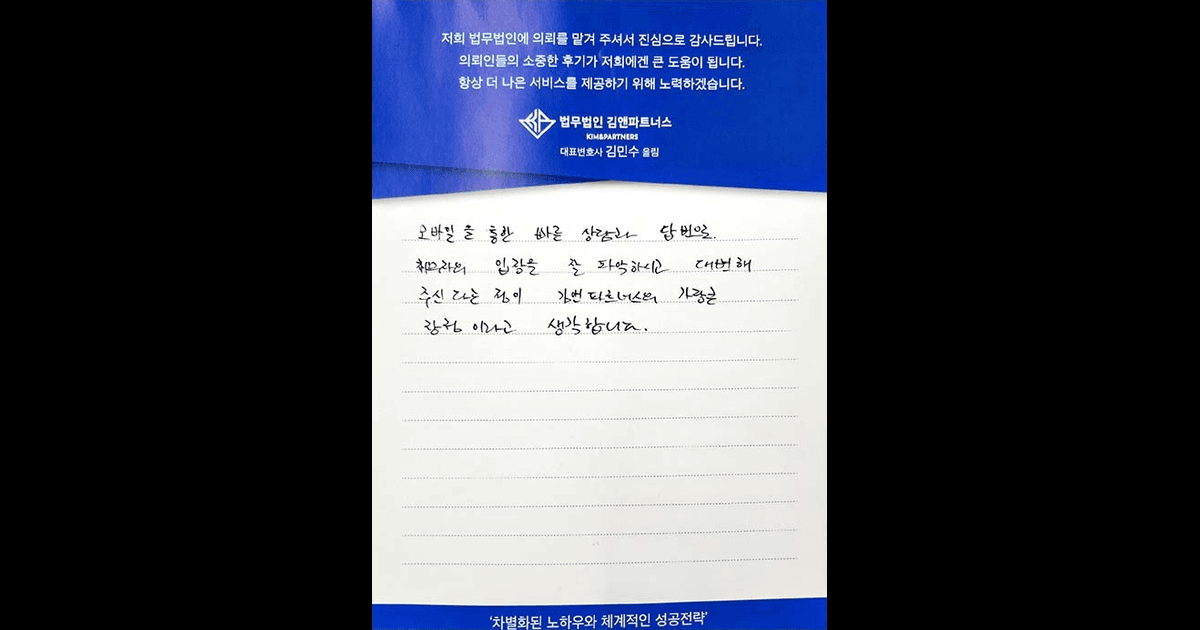 저희 법무법인에 의뢰를 맡겨 주셔서 진심으로 감사드립니다.
의뢰인들의 소중한 후기가 저희에겐 큰 도움이 됩니다.
항상 더 나은 서비스를 제공하기 위해 노력하겠습니다.
법무법인 김앤파트너스
KIM&PARTNERS
대표변호사 김민수 올림
모바일을 통한 빠른 상담과 답변으로
입장을 잘 파악하시고 대변해
주신 다는 점이 파트너스의 가장큰
장점 이라고 생각합니다.
'차별화된 노하우와 체계적인 성공전략'